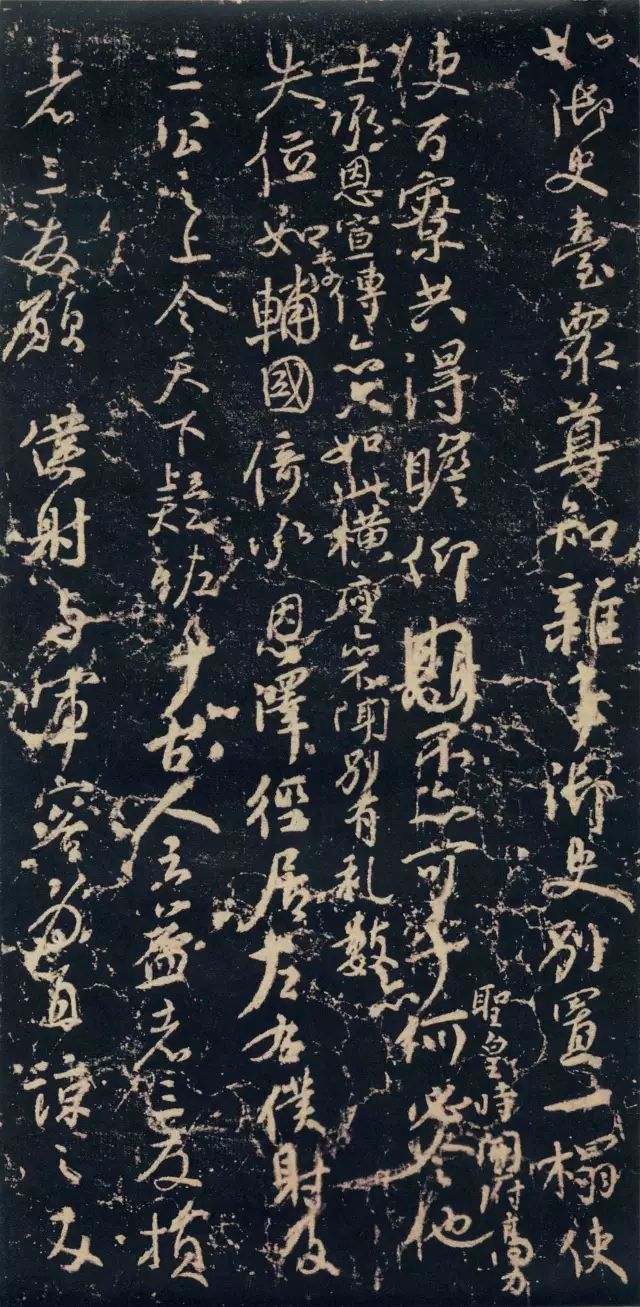 如御史臺眾尊知雜事御史別置一榻使
使百寮共得瞻仰不亦可乎
聖皇時開府高力
士承恩宣傳亦只如此橫座亦不聞別有礼數
亦何必令他
失位如李輔國倚承恩澤徑居左右僕射及
三公之上令天下疑恠乎古人云益者三友損
者三友願僕射与軍容為直諒之友